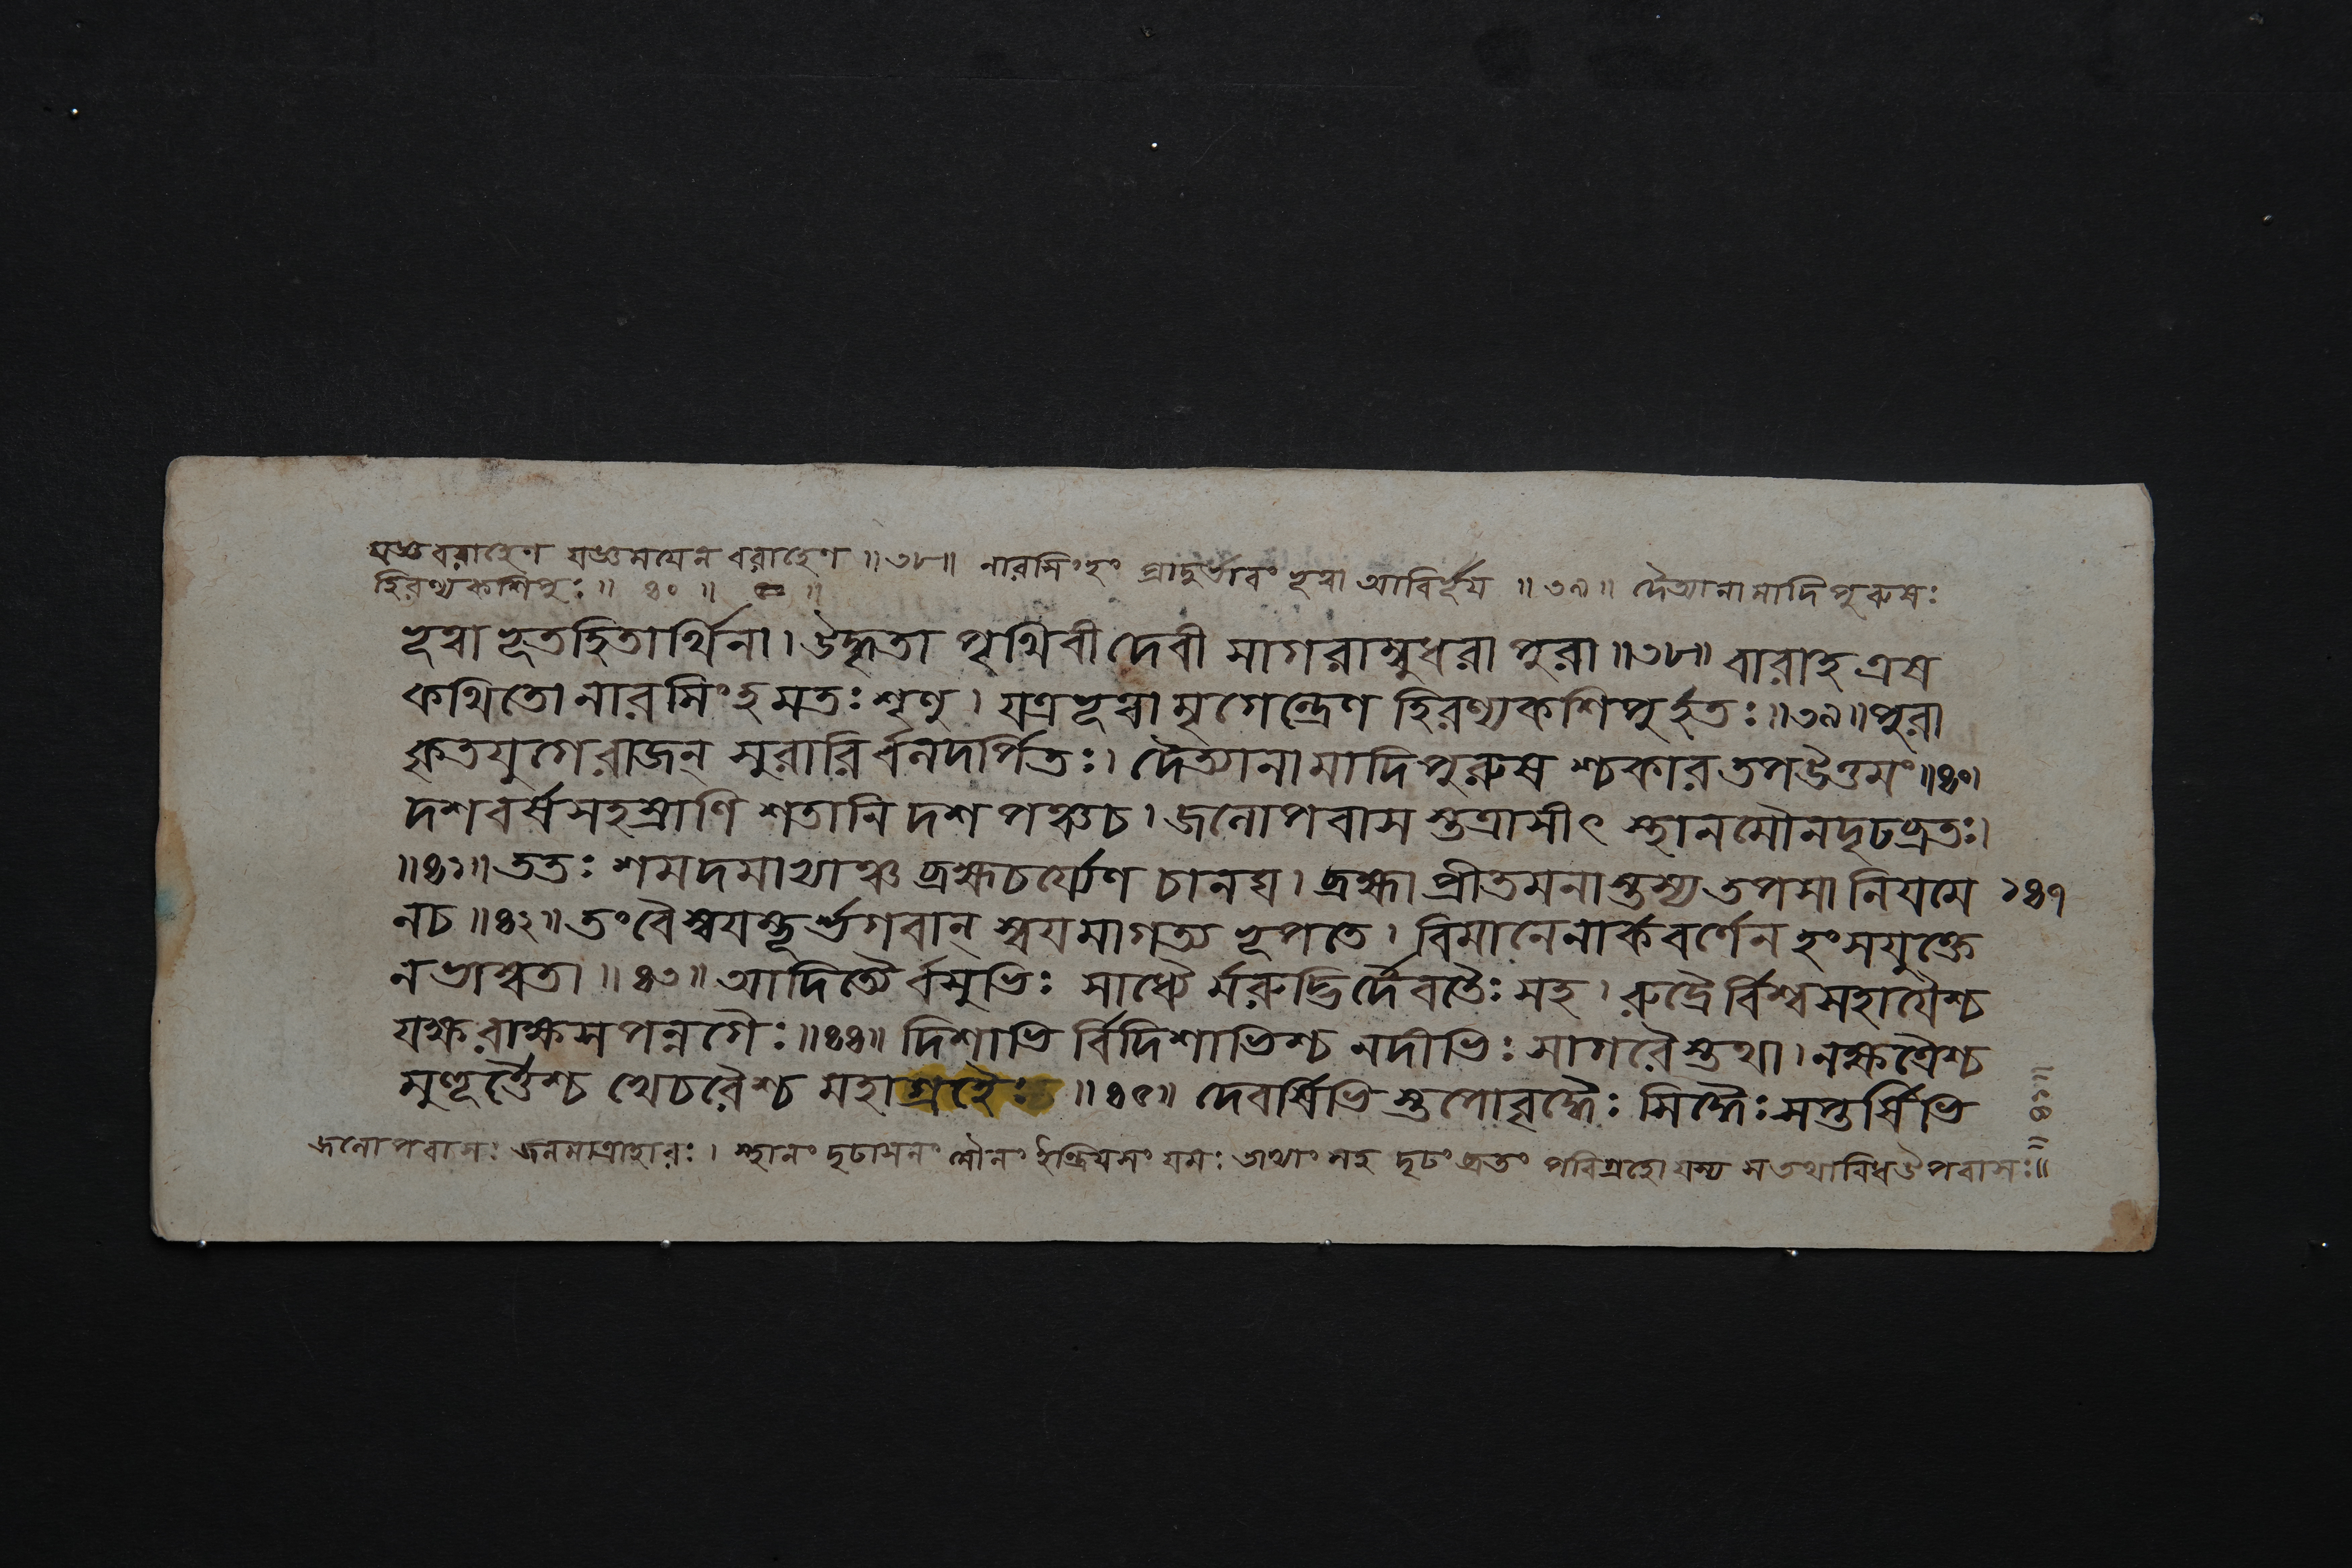 যজ্ঞবরাহেণ যজ্ঞময়েন বরাহেণ ॥৩৮॥ নারসিংহং প্রাদুর্ভাবং ভূত্বা আবির্ভূয় ॥৩৯॥ দৈত্যানামাদিপুরুষঃ
হিরণ্যকশিপুঃ॥ ৪০ ॥
ভূত্বা ভূতহিতার্থিনা। উদ্ধৃতা পৃথিবী দেবী সাগরাম্বুধরা পুরা॥৩৮॥ বারাহ এষ
কথিতো নারসিংহমতঃ শৃণু। যত্র ভূত্বা মৃগেন্দ্রেণ হিরণ্যকশিপুর্হতঃ॥৩৯॥পুরা
কৃতযুগে রাজন্ সুরারির্বলদর্পিতঃ। দৈত্যানামাদিপুরুষশ্চকার তপউত্তমং॥৪০।
দশবর্ষসহস্রাণি শতানি দশ পঞ্চ চ। জলোপবাসস্তত্রাসীৎ স্থানমৌনদৃঢব্রতঃ।
॥৪১॥ ততঃ শমদমাভ্যাঞ্চ ব্রহ্মচর্য্যেণ চানঘ। ব্রহ্মা প্রীতমনাস্তস্য তপসা নিযমে ১৪৭
নচ॥৪২॥ তং বৈ স্বযম্ভূর্ভগবান্ স্বযমাগত্য ভূপতে। বিমানেনার্কবর্ণেন হংসযুক্তে
নভাস্বতা॥৪৩॥ আদিত্যৈর্বসুভিঃ সাধ্যৈর্মরুদ্ভির্দৈবতৈঃ সহ। রুদ্রৈর্বিশ্বসহাযৈশ্চ
যক্ষরাক্ষসপন্নগৈঃ॥৪৪॥ দিশাভির্বিদিশাভিশ্চ নদীভিঃ সাগরৈস্তথা। নক্ষত্রৈশ্চ
মুহূর্ত্তৈশ্চ খেচরৈশ্চ মহাগ্রহৈঃ ॥৪৫॥ দেবর্ষিভিস্তপোবৃদ্ধৈঃ সিদ্ধৈঃ সপ্তর্ষিভি
জলোপবাসঃ জলমাত্রাহারঃ। স্থানং দৃঢাসনং মৌনং ইন্দ্রিযসংযমঃ তাভ্যাং সহ দৃঢং ব্রতং পরিগ্রহো যস্য স তথাবিধ উপবাসঃ॥
॥৪১॥